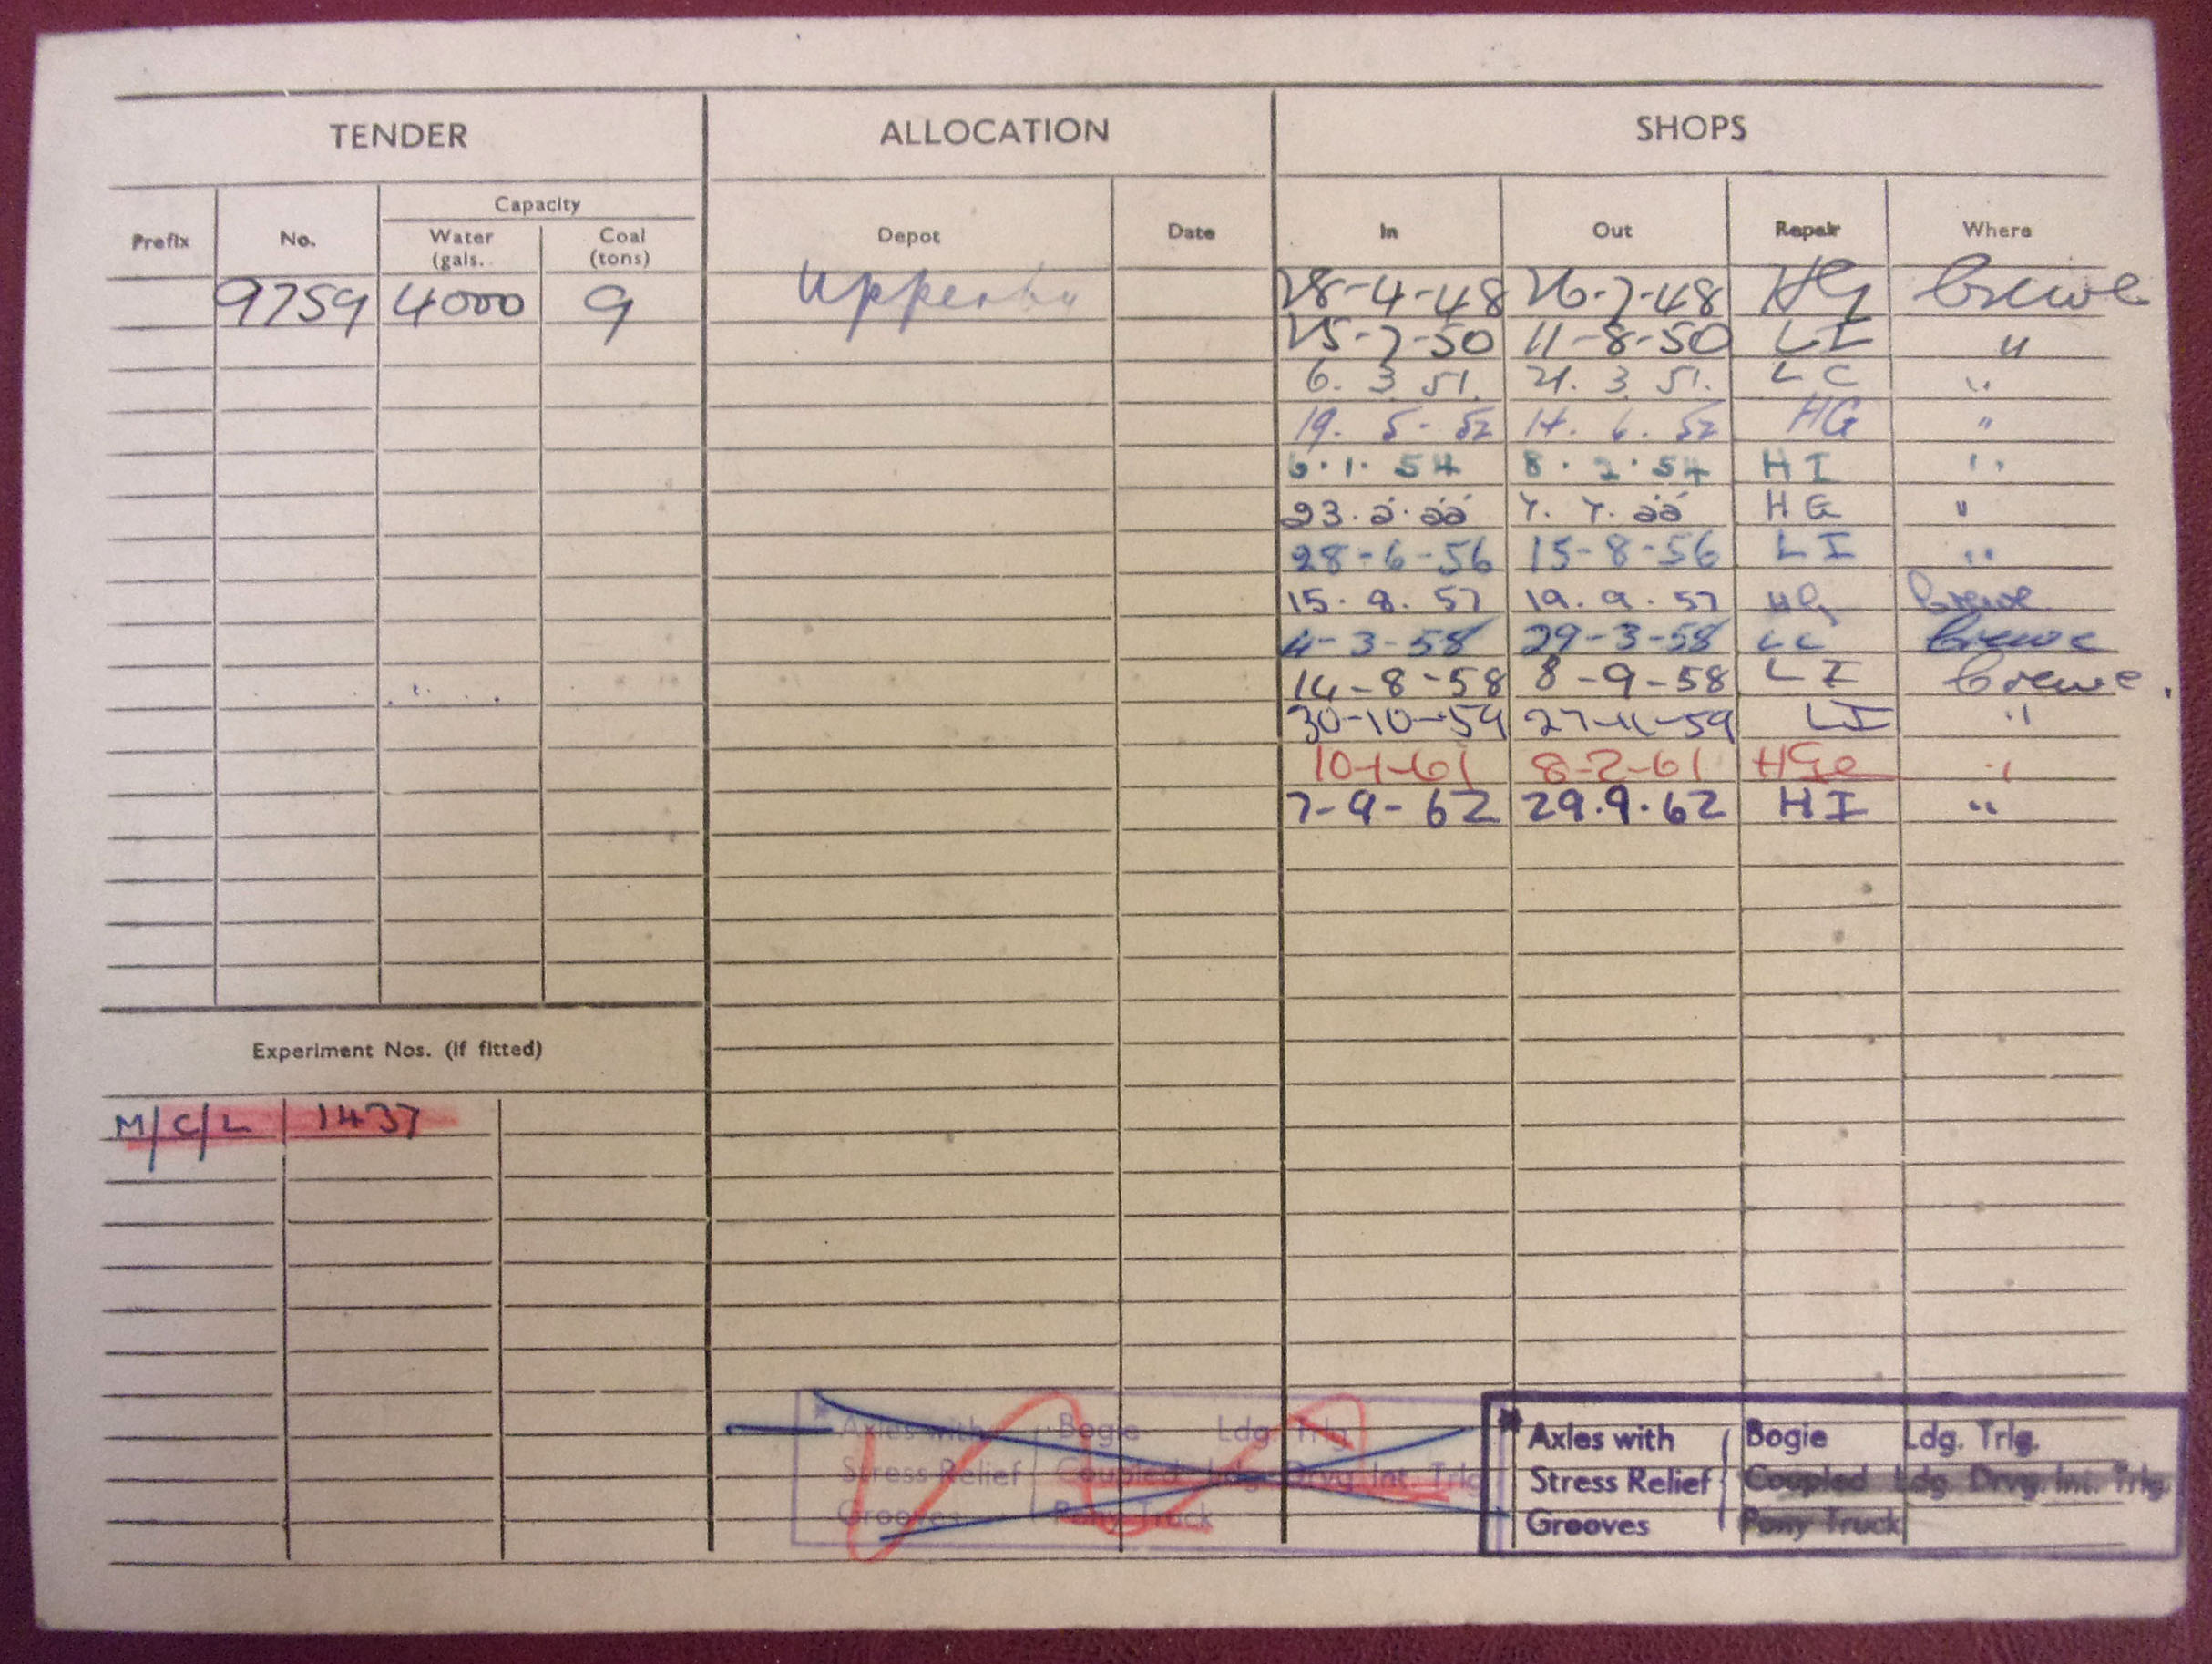 TENDER ALLOCATION SHOPS
Capacity
Prefix No. Water Coal Depot Date In Out Repair Where
(gals. (tons)
9759 4000 9 Upperby 28-4-48 26-7-48 HG Crewe
25-7-50 11-8-50 LI "
6. 3 51. 21. 3 51. LC "
19. 5- 52 14. 6. 52 HG "
6.1. 54 8. 2. 54 HI "
23.5.55 7. 7. 55 HG "
28-6-56 15-8-56 LI "
15. 8. 57 19. 9. 57 HG Crewe
4-3-58 29-3-58 LC Crewe
14-8-58 8-9-58 LI Crewe.
30-10-59 27-11-59 LI "
10-1-61 8-2-61 "
7-9-62 29.9.62 HI "
Experiment Nos. (if fitted)
M/C/L 1437
Axles with Bogie Ldg Trlg
Stress Relief Coupled Ldg. Drvg. Int. Trlg
Grooves Pony Truck
* Axles with Bogie Ldg. Trlg.
Stress Relief Coupled Ldg. Drvg. Int. Trlg.
Grooves Pony Truck